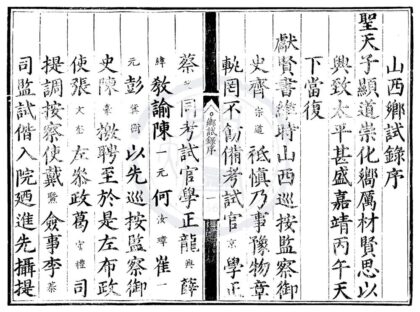 山西鄉試錄序
聖天子顯道崇化嚮厲材賢思以
興致太平甚盛嘉靖丙午天
下當復
獻賢書維時山西巡按監察御
史齊宗道祗慎乃事豫物章
軌罔不飭備考試官京學正
鄉試錄序
一
蔡同考試官學正龍興薛
緯教諭陳一元何汝璋崔一
元彭以先巡按監察御
史陳豪檄聘至於是左布政
使張大左參政葛官禮司
提調按察使戴賢僉事李蓁
司監試偕入院廼進先攝提